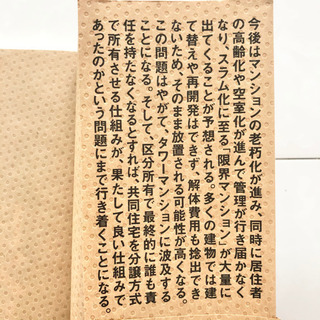 今後はマンションの老朽化が進み、同時に居住者
の高齢化や空室化が進んで管理が行き届かなく
なり、スラム化に至る「限界マンション」が大量に
出てくることが予想される。多くの建物では建
て替えや再開発はできず、解体費用も捻出でき
ないため、そのまま放置される可能性が高くなる。
この問題はやがて、タワーマンションに波及する
ことになる。そして、区分所有で最終的に誰も責
任を持たなくなるとすれば、共同住宅を分譲方式
で所有させる仕組みが、果たして良い仕組みで
あったのかという問題にまで行き着くことになる。